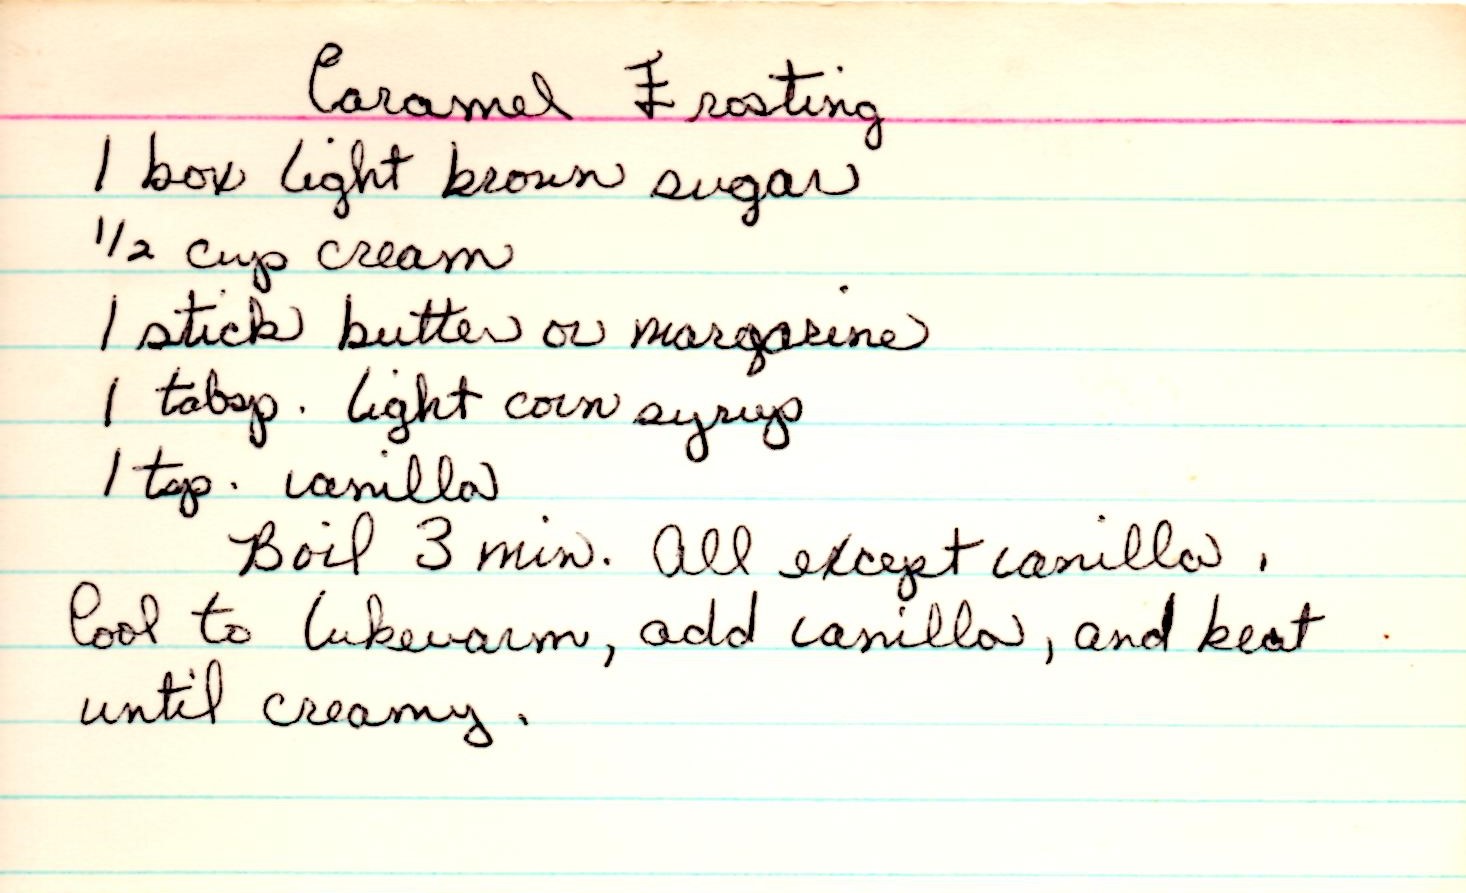 Caramel Frosting
1 box light brown sugar
1/2 cup cream
1 stick butter or margarine
1 tabsp. light corn syrup
1 tsp. vanilla
Boil 3 min. All except vanilla.
Cool to lukewarm, add vanilla, and beat
until creamy.